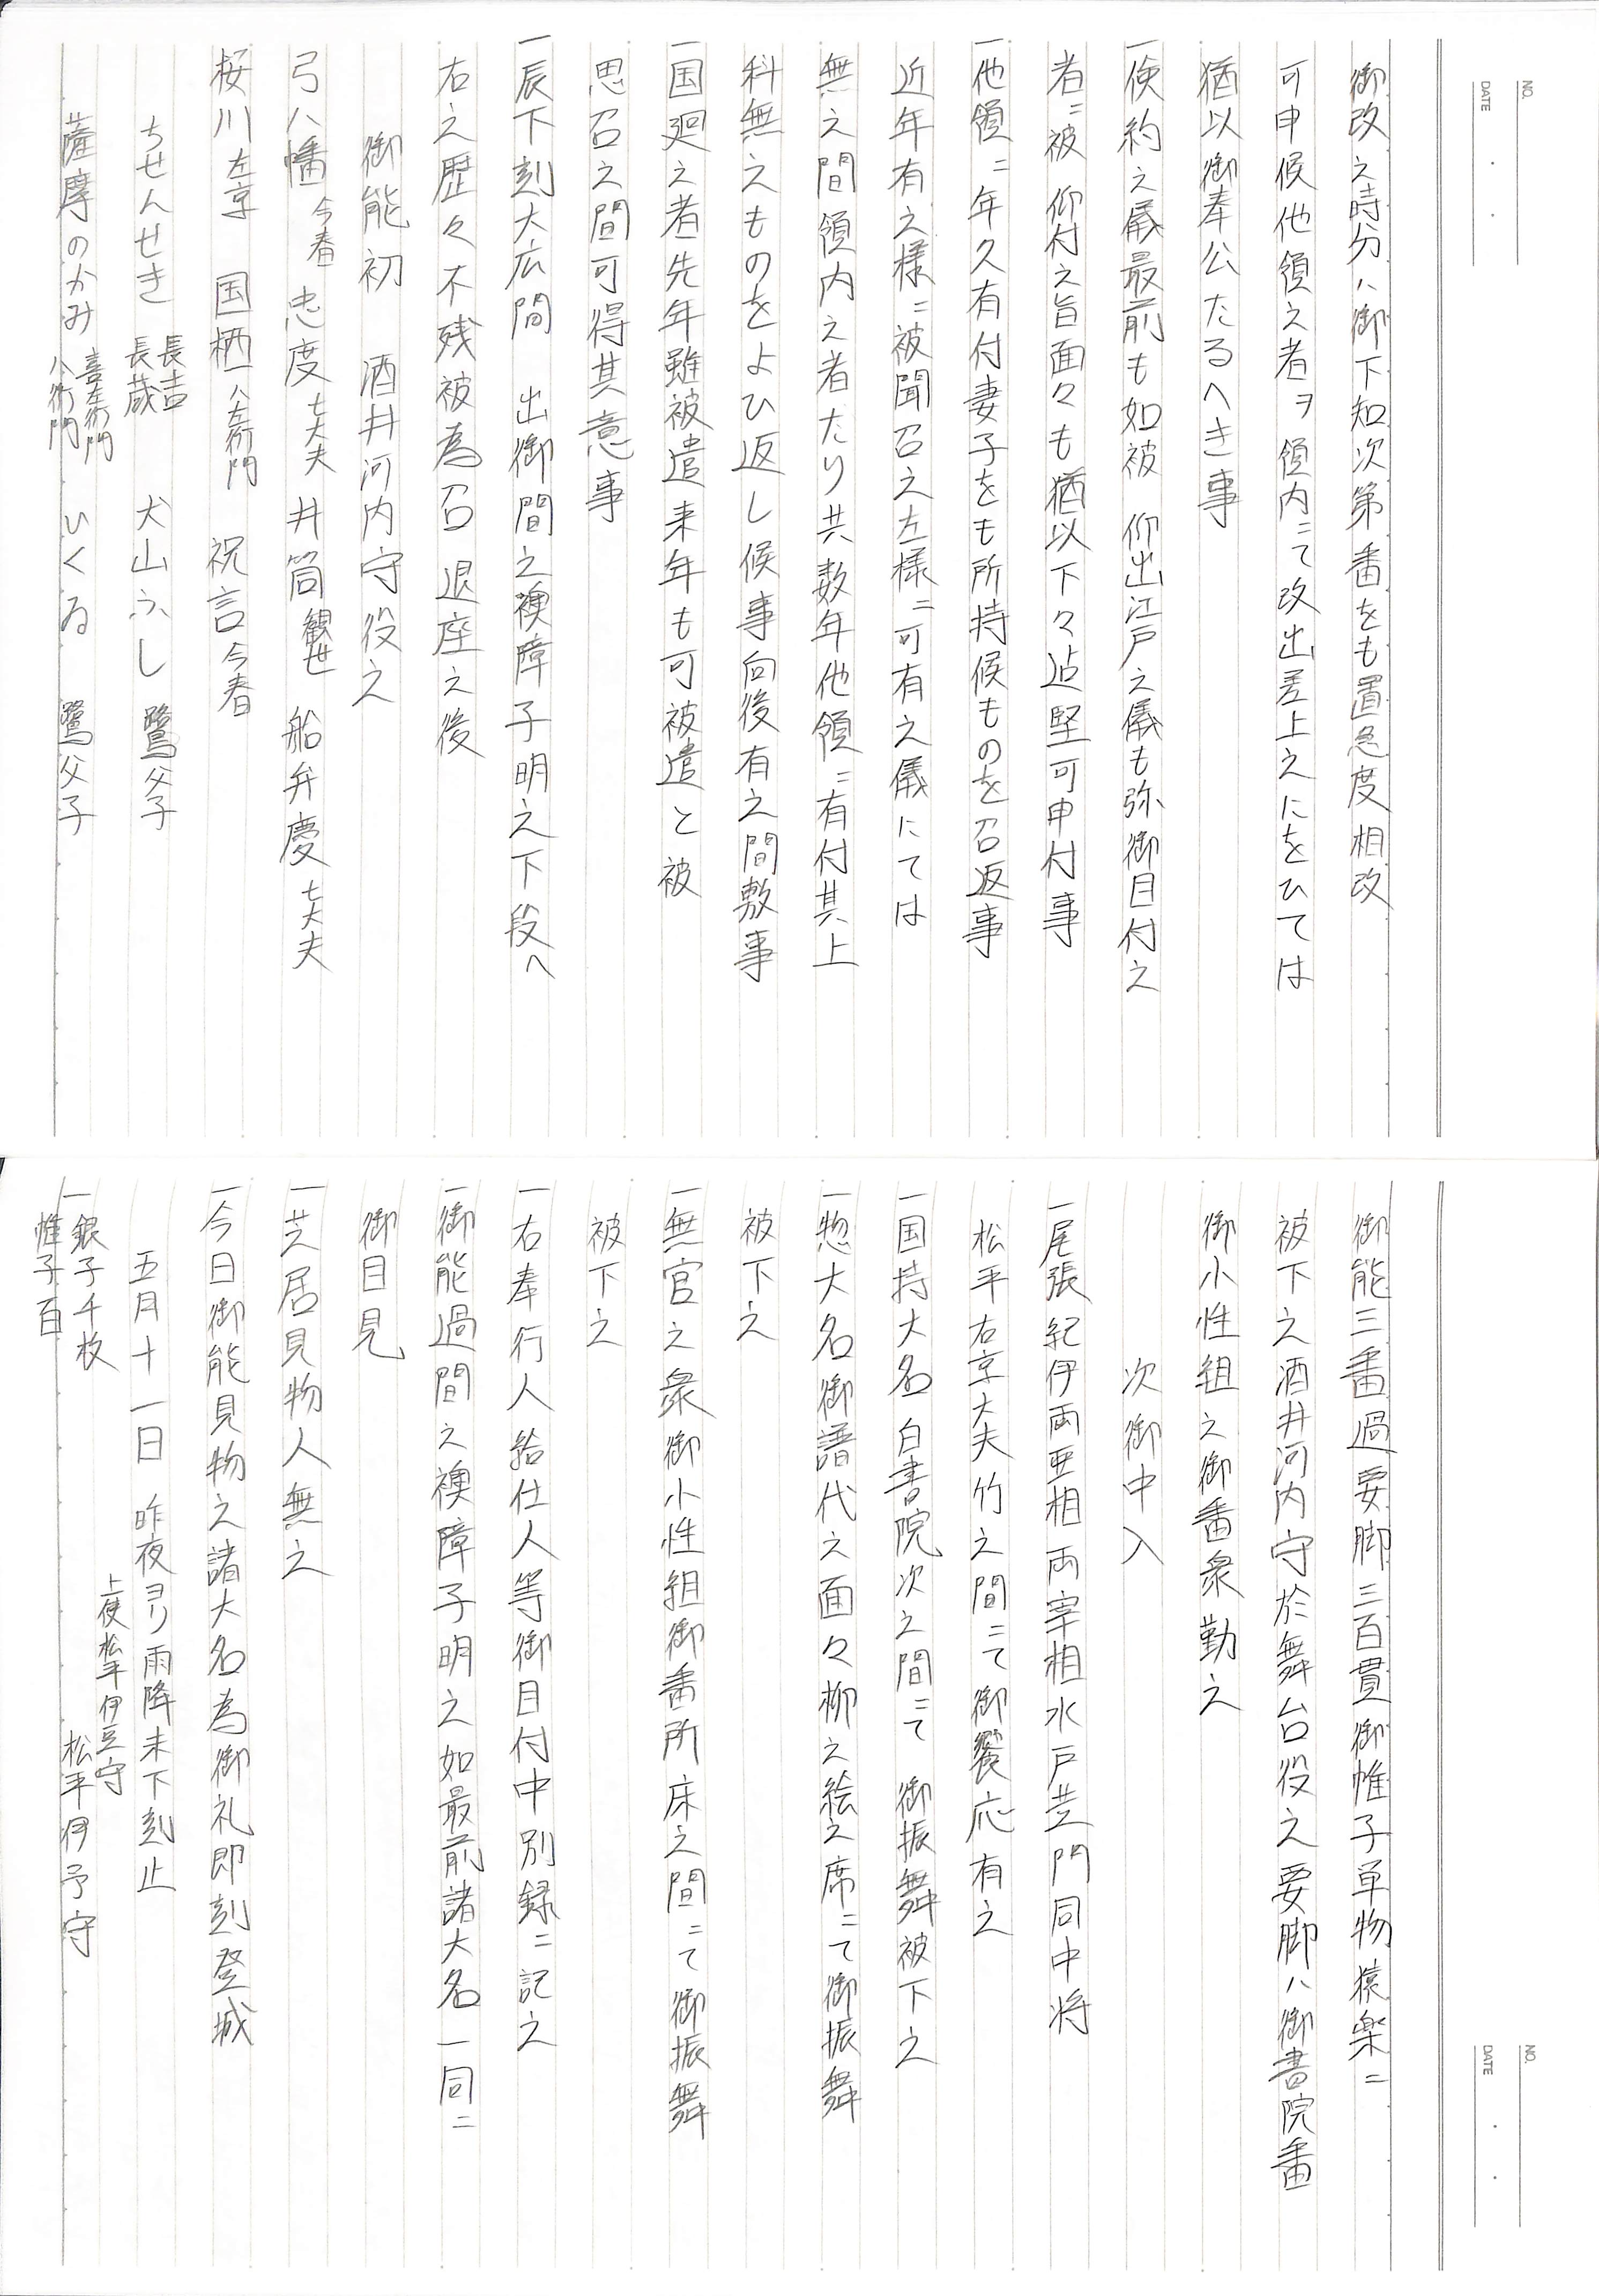 NO.
DATE
御改之時分ハ御下知次第番をも置急度相改
可申候他領之者ヲ領内ニて改出差上之にをひては
猶以御奉公たるへき事
一倹約之儀最前も如被 仰出江戸之儀も弥御目付之
者ニ被 仰付之旨面々も猶以下々迠堅可申付事
一他領ニ年久有付妻子をも所持候ものを召返事
近年有之様ニ被聞召之左様ニ可有之儀にては
無之間領内之者たり共数年他領ニ有付其上
科無之ものをよひ返し候事向後有之間敷事
一国廻之者先年雖被遣来年も可被遣と被
思召之間可得其意事
一辰下刻大広間 出御間之襖障子明之下段へ
右之歴々不残被為召退座之後
御能初 酒井河内守役之
弓八幡 今春 忠度 七大夫 井筒 観世 船弁慶 七大夫
桜川 左京 国栖 八左衛門 祝言 今春
ちせんせき 長吉 長蔵 犬山ふし 鷺父子
薩摩のかみ 喜左衛門 八衛門 ひくゐ 鷺父子
NO.
DATE
御能三番過要脚三百貫御帷子単物猿楽ニ
被下之酒井河内守於舞台役之要脚ハ御書院番
御小性組之御番衆勤之
次御中入
一尾張紀伊両亜相両宰相水戸黄門同中将
松平右京大夫竹之間ニて御饗応有之
一国持大名白書院次之間ニて御振舞被下之
一惣大名御譜代之面々柳之絵之席ニて御振舞
被下之
一無官之衆御小性組御番所床之間ニて御振舞
被下之
一右奉行人給仕人等御目付中別録ニ記之
一御能過間之襖障子明之如最前諸大名一同ニ
御目見
一芝居見物人無之
一今日御能見物之諸大名為御礼即刻登城
五月十一日 昨夜ヨリ雨降未下刻止
一銀子千枚 帷子百 上使松平伊豆守 松平伊予守